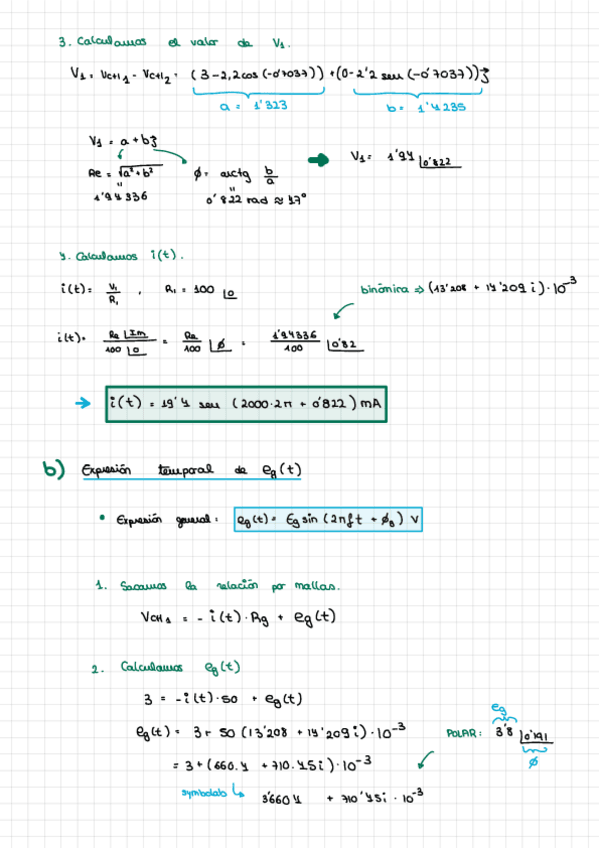 3. Calculamos el valor de V₁.
V₁ = VCH₁ - VCH₂ = (3-2,2cos(-0'7037)) + (0-2'2 sen(-0'7037))j
a = 1'323 b = 1'4235
V₁ = a + bj
Re = √a²+b² ϕ = arctg b/a V₁ = 1'94 |0'822
1'94336 0'822 rad ≈ 47°
4. Calculamos i(t).
i(t) = V₁/R₁ , R₁ = 100 |0 binómica ⇒ (13'208 + 14'209i)·10⁻³
i(t) = Re |Im / 100 |0 = Re/100 |ϕ = 1'94336/100 |0'82
→ i(t) = 19'4 sen (2000·2π + 0'822) mA
b) Expresión temporal de eg(t)
• Expresión general: eg(t) = Eg sin (2πft + ϕg) V
1. Sacamos la relación por mallas.
VCH₁ = - i(t)·Rg + eg(t)
2. Calculamos eg(t)
3 = -i(t)·50 + eg(t)
eg
eg(t) = 3 + 50 (13'208 + 14'209i)·10⁻³ POLAR: 3'8 |0'191
ϕ
= 3 + (660.4 + 710.45i)·10⁻³
symbolab 3'6604 + 710'45i · 10⁻³